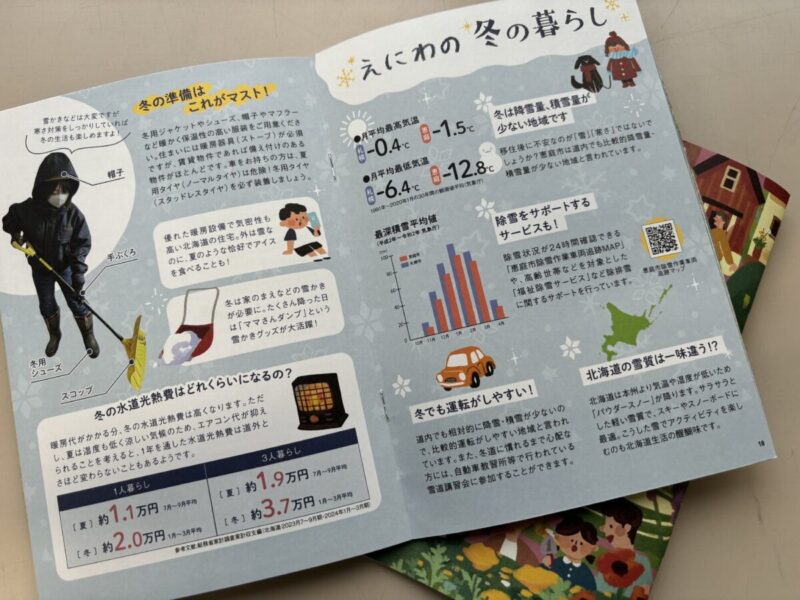 冬の準備は
これがマスト！
雪かきなどは大変ですが
寒さ対策をしっかりしていれば
冬の生活も楽しめますよ！
冬用ジャケットやシューズ、帽子やマフラー
など暖かく保温性の高い服装をご用意くださ
い。住まいには暖房器具(ストーブ)が必須
ですが、賃貸物件であれば備え付けのある
物件がほとんどです。車をお持ちの方は、夏
用タイヤ(ノーマルタイヤ)は危険！冬用タイヤ
(スタッドレスタイヤ)を必ず装着しましょう。
帽子
手ぶくろ
冬用
シューズ
スコップ
優れた暖房設備で気密性も
高い北海道の住宅。外は雪な
のに、夏のような恰好でアイス
を食べることも！
冬は家のまえなどの雪かき
が必要に。たくさん降った日
は「ママさんダンプ」という
雪かきグッズが大活躍！
冬の水道光熱費はどれくらいになるの？
暖房代がかかる分、冬の水道光熱費は高くなります。ただ
し、夏は湿度も低く涼しい気候のため、エアコン代が抑え
られることを考えると、1年を通した水道光熱費は道外と
さほど変わらないこともあるようです。
1人暮らし
［夏］約1.1万円 7月〜9月平均
［冬］約2.0万円 1月〜3月平均
3人暮らし
［夏］約1.9万円 7月〜9月平均
［冬］約3.7万円 1月〜3月平均
参考文献:総務省家計調査家計収支編(北海道:2023月7〜9月期・2024年1〜3月期)
えにわの 冬の暮らし
●月平均最高気温
札幌 -0.4℃ 恵庭 -1.5℃
●月平均最低気温
札幌 -6.4℃ 恵庭 -12.8℃
1991年〜2020年1月の30年間の観測値平均(気象庁)
最深積雪平均値
(平成3年〜令和2年 気象庁)
恵庭
札幌
100
80
60
40
20
0
10月 11月 12月 1月 2月 3月 4月
冬は降雪量、積雪量が
少ない地域です
移住後に不安なのが「雪」「寒さ」ではないで
しょうか？恵庭市は道内でも比較的降雪量・
積雪量が少ない地域と言われています。
除雪をサポートする
サービスも！
除雪状況が24時間確認できる
「恵庭市除雪作業車両追跡MAP」
や、高齢世帯などを対象とした
「福祉除雪サービス」など除排雪
に関するサポートを行っています。
恵庭市除雪作業車両
追跡マップ
冬でも運転がしやすい！
道内でも相対的に降雪・積雪が少ないの
で、比較的運転がしやすい地域と言われて
います。また、冬道に慣れるまで心配な
方には、自動車教習所等で行われている
雪道講習会に参加することができます。
北海道の雪質は一味違う!?
北海道は本州より気温や湿度が低いため
「パウダースノー」が降ります。サラサラと
した軽い雪質で、スキーやスノーボードに
最適。こうした雪でアクティビティを楽し
むのも北海道生活の醍醐味です。
18